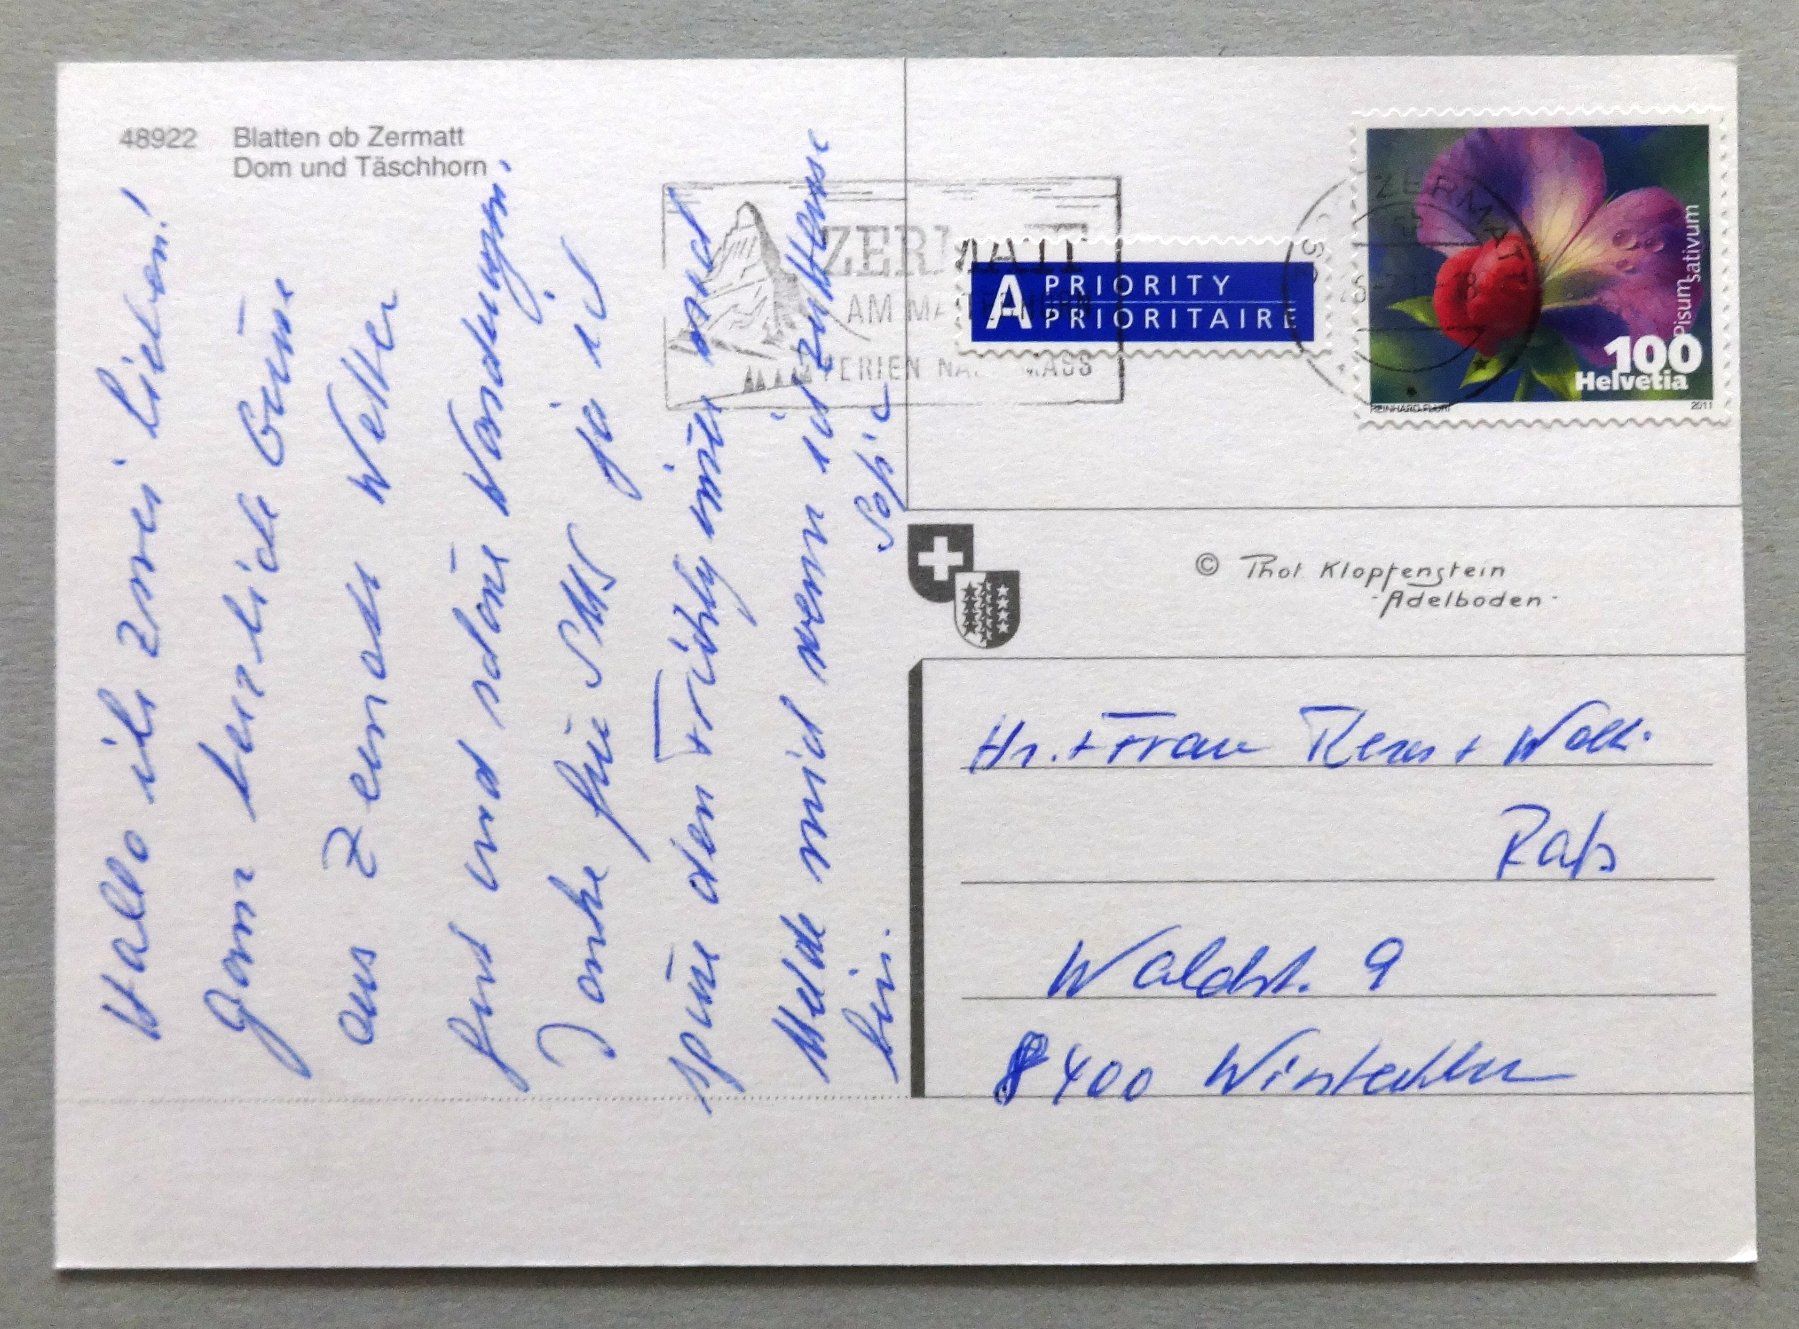 48922 Blatten ob Zermatt
Dom und Täschhorn
Hallo ihr zwei Lieben!
Ganz herzliche Grüsse
aus Zermatt Wetter
gut und schöne Wanderungen.
Danke für SMS ja ich
spüre den Frühling und
Melde mich wenn ich zuhause
bin. Sofie
ZERMATT
AM MATTERHORN
FERIEN NACH MASS
A PRIORITY
PRIORITAIRE
ZERMATT
Pisum sativum
100
Helvetia
REINHARD FLURI 2011
© Thol Klopfenstein
- Adelboden -
Hr. + Frau + Walt.
Waldstr. 9
8400 Winterthur